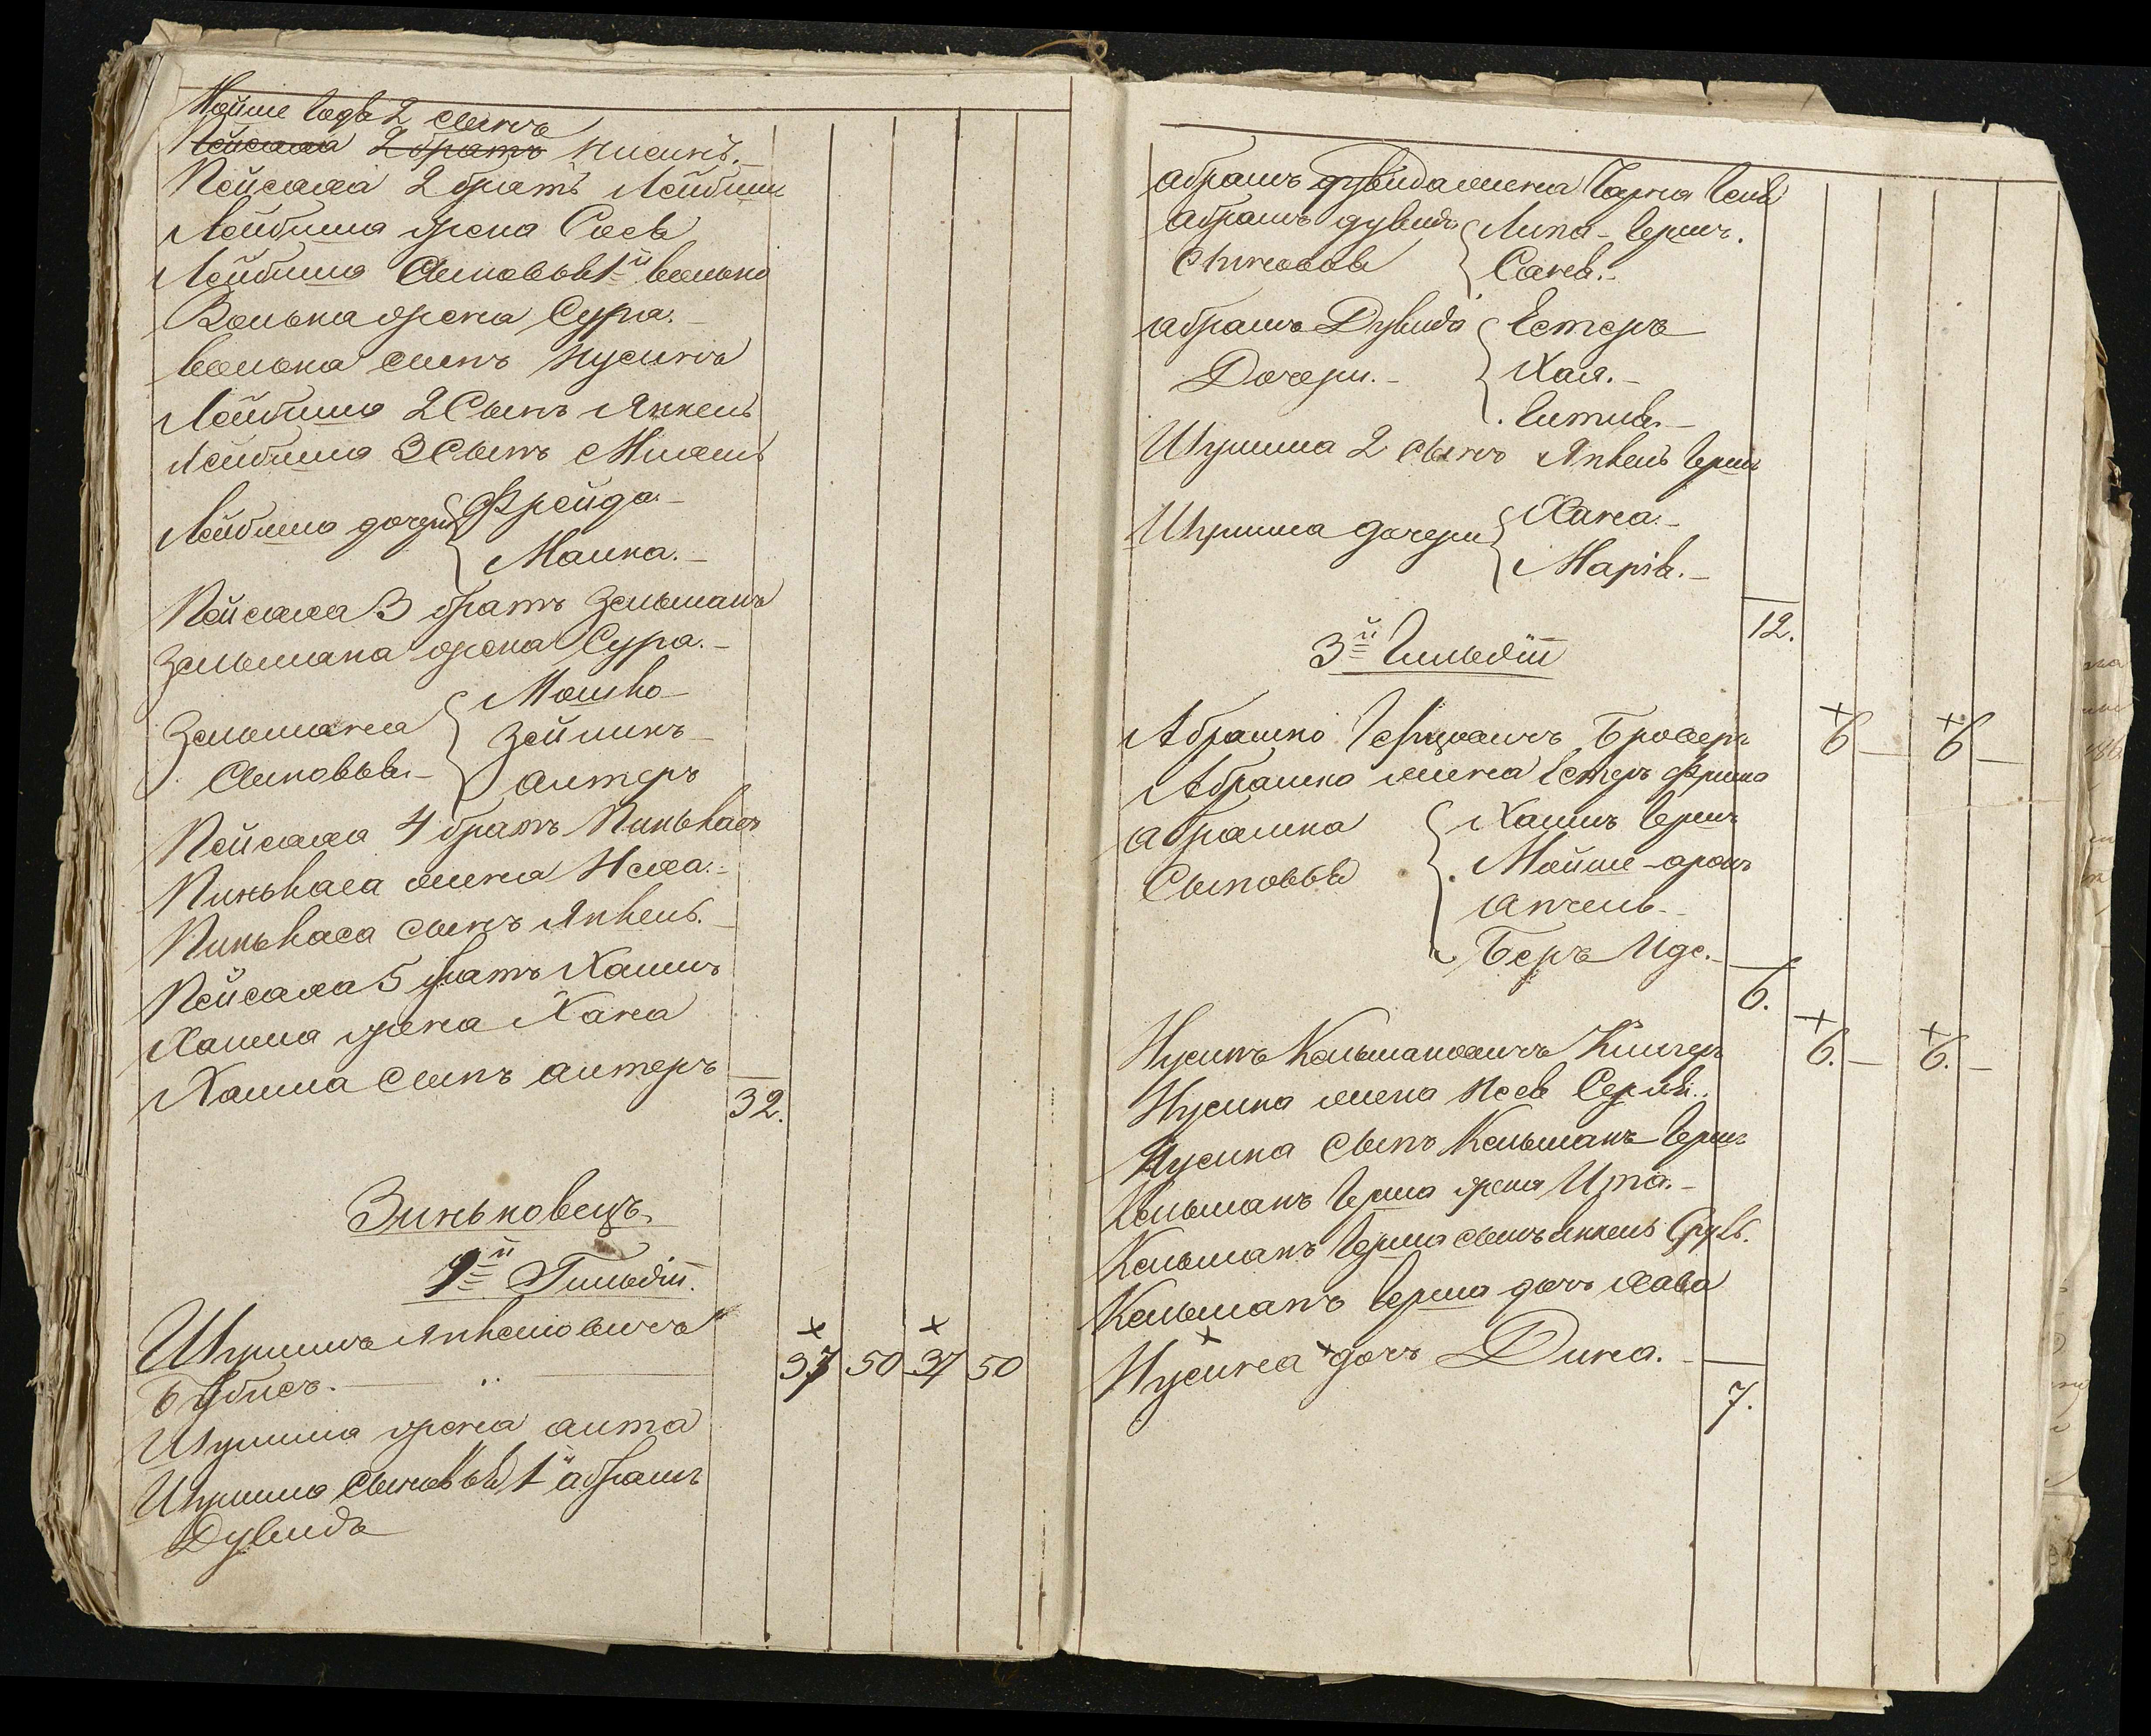 Мойше Годъ 2 сынъ
Пейсаха 2 братъ Нисинъ.
Пейсаха 2 братъ Лейбишъ
Лейбиша жена Сося
Лейбиша Сыновья 1й Волько
Волька жена Сура.
Волька сынъ Нусинъ
Лейбиша 2 Сынъ Янкель
Лейбиша 3 Сынъ Михель
Лейбиша дочери { Фрейда.
Малка.
Пейсаха 3 братъ Зельманъ
Зельмана жена Сура.
Зельмана { Мошко
Сыновья Зейликъ
Алтеръ
Пейсаха 4 братъ Пинькасъ
Пинькаса жена Неха.
Пинькаса сынъ Янкель.
Пейсаха 5 братъ Хаимъ
Хаима жена Хана
Хаима сынъ Алтеръ
32.
Зиньковецъ
1й Гильдіи.
Шулимъ Янкелювичъ
Бубисъ. 37 50 37 50
Шулима жена
Шулима сыновья 1й Абрамъ
Дувидъ
Абрамъ Дувида жена
Абрамъ Дувида { Липа-Гершъ.
Сыновья
Абрамъ Дувида { Естеръ
Дочери. Хая.
Гитля.
Шулима 2 сынъ Янкель Гершъ
Шулима дочери { Хана.
Марія.
12.
3й Гильдіи
Абрашко Броверъ 6 — 6 —
Абрашка жена Естеръ Фрима
Абрашка { Хаимъ Гершъ
Сыновья Мойше-Аронъ
Анчель
Беръ Иде.
6.
Нусинъ Кельмановичъ 6. — 6. —
Нусина жена Песя
Нусина сынъ Кельманъ Гершъ
Кельманъ Герша жена Ита.
Кельманъ Герша сынъ Янкель
Кельманъ Герша дочь Хава
Нусина дочь Дина.
7.